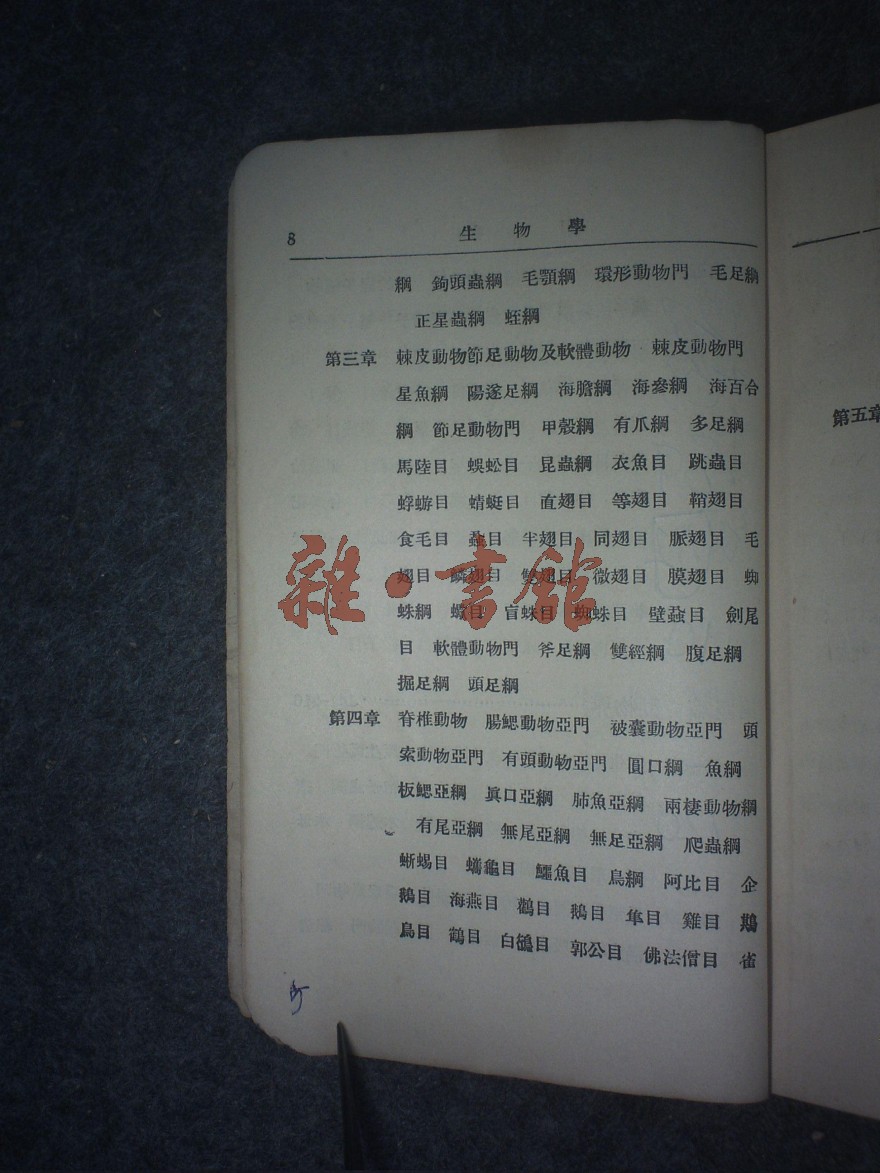 8 生物學
綱 鉤頭蟲綱 毛顎綱 環形動物門 毛足綱
正星蟲綱 蛭綱
第三章 棘皮動物節足動物及軟體動物 棘皮動物門
星魚綱 陽遂足綱 海膽綱 海參綱 海百合
綱 節足動物門 甲殼綱 有爪綱 多足綱
馬陸目 蜈蚣目 昆蟲綱 衣魚目 跳蟲目
蜉蝣目 蜻蜓目 直翅目 等翅目 鞘翅目
食毛目 蝨目 半翅目 同翅目 脈翅目 毛
翅目 鱗翅目 雙翅目 微翅目 膜翅目 蜘
蛛綱 蠍目 盲蛛目 蜘蛛目 壁蝨目 劍尾
目 軟體動物門 斧足綱 雙經綱 腹足綱
掘足綱 頭足綱
第四章 脊椎動物 腸鰓動物亞門 被囊動物亞門 頭
索動物亞門 有頭動物亞門 圓口綱 魚綱
板鰓亞綱 眞口亞綱 肺魚亞綱 兩棲動物綱
有尾亞綱 無尾亞綱 無足亞綱 爬蟲綱
蜥蜴目 蠵龜目 鱷魚目 鳥綱 阿比目 企
鵝目 海燕目 鸛目 鵝目 隼目 雞目 鷸
鳥目 鶴目 白鴴目 郭公目 佛法僧目 雀
第五章
雜·書館